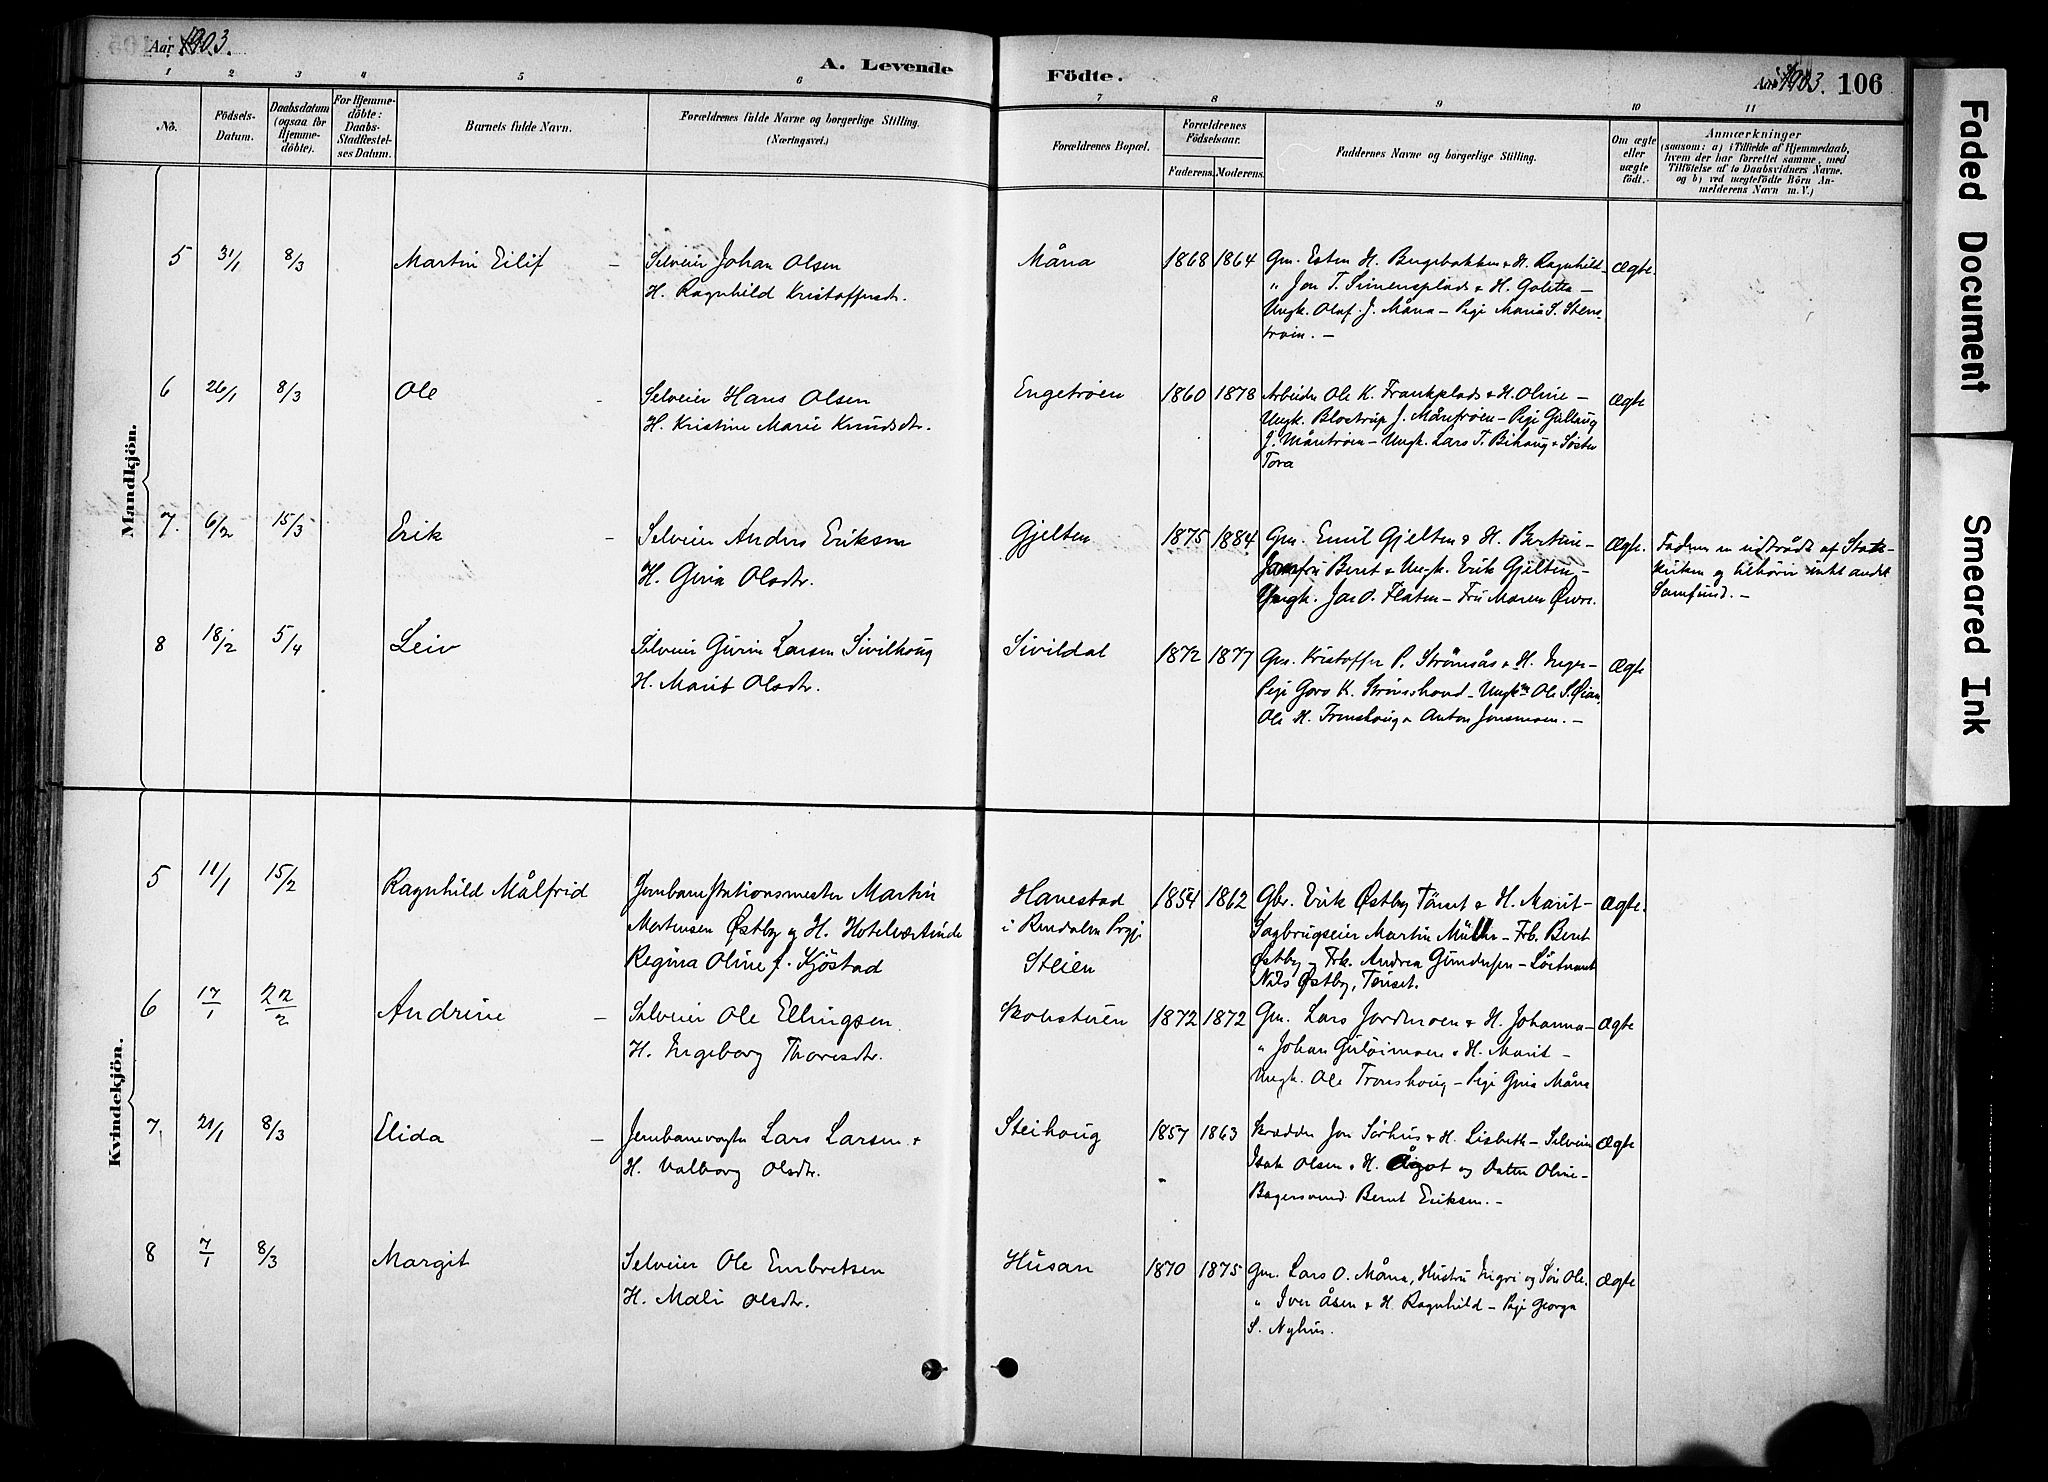 Aar 1903.
A. Levende
Födte.
Aar 1903. 106
1 2 3 4 5 6 7 8 9 10 11
No.
Födsels-
Datum.
Daabsdatum
(ogsaa for
Hjemme-
döbte).
For Hjemme-
döbte:
Daabs-
Stadfæstel-
ses Datum.
Barnets fulde Navn.
Forældrenes fulde Navne og borgerlige Stilling.
(Næringsvei.)
Forældrenes Bopæl.
Forældrenes
Födselsaar.
Faderens. Moderens.
Faddernes Navne og borgerlige Stilling.
Om ægte
eller
uægte
födt.
Anmærkninger
(saasom: a) i Tilfælde af Hjemmedaab,
hvem der har forrettet samme, med
Tilföielse af to Daabsvidners Navne.
og b) ved uægtefödte Börn An-
melderens Navn m. V.)
Mandkjön.
5 31/1 8/3 Martin Eilif – Selveier Johan Olsen
H. Ragnhild Kristoffersdr.
Måna 1868 1864
Gm. Esten H. Bugebakken & H. Ragnhild–
" Jon T. Simensplads & H. Goletta –
Ungk. Olaf J. Måna – Pige Maria S. Stens
trøin. –
Ægte.
6 26/1 8/3 Ole – Selveier Hans Olsen
H. Kristine Marie Knudsdr.
Engetrøen 1860 1878
Arbeider Ole K. Frankplads & H. Oline –
Ungk. Blostrup J. Månetrøen – Pige Gullaug
J. Månetrøen – Ungk. Lars T. Bihaug & Søster
Tora
Ægte
7. 6/2 15/3 Erik – Selveier Anders Eriksen
H. Gina Olsdtr.
Gjelten 1875 1884
Gm. Emil Gjelten & H. Bertine –
Jomfru Beret & Ungk. Erik Gjelten –
Ungk. Jo O. Flaten – Fru Maren Øvre.
Ægte.
Faderen er udtrådt af Stats-
kirken og tilhører intet andet
Samfund. –
8 18/2 5/4 Leiv Selveier Givrin Larsen Sivilhoug
H. Marit Olsdtr.
Sivildal 1872 1877
Gm. Kristoffer P. Strømsås & H. Inger –
Pige Goro K. Strømshoud – Ungk. Ole S. Øian,
Ole H. Tronshoug & Anton Jonsmoen. –
Ægte
Kvindekjön.
5 11/1 15/2 Ragnhild Målfrid Jernbanestationsmester Martin
Mortensen Østby og H. Hotelværtinde
Regina Oline f. Kjøstad
Hanestad
i Rendalen Prgj.
Steien
1854 1862
Gbr. Erik Østby Tönset & H. Marit –
Sagbrugseier Martin Müller – Frk. Beret
Østby og Frk. Andrea Gundersen – Löitnant
Nils Østby, Tönset.
Ægte.
6 17/1 22/2 Andrine – Selveier Ole Ellingsen
H. Ingeborg Thoresdtr.
Skoustuen 1872 1872
Gm. Lars Jordmoen & H. Johanna –
" Johan Guløimoen & H. Marit –
Ungk. Ole Tronshoug – Pige Gina Måna
Ægte
7. 21/1 8/3 Elida – Jernbanevogter Lars Larsen &
H. Valborg Olsdtr.
Steihoug 1857 1863
Skrædder Jon Sörhus & H. Lisbeth – Selveier
Isak Olsen & H. Ågot og Datter Oline –
Bagersvend Bernt Eriksen. –
Ægte
8 7/1 8/3 Margit Selveier Ole Embretsen
H. Mali Olsdtr.
Husan 1870 1875
Gm. Lars O. Måna, Hustru Ingri og Søn Ole.
" Iver Åsen & H. Ragnhild – Pige Georga
S. Nyhus.
Ægte
Faded Document
Smeared Ink